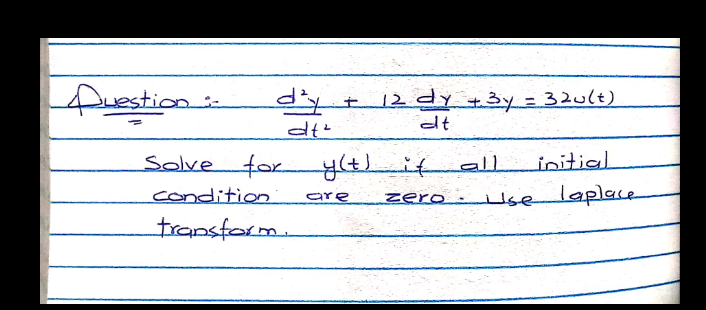 Question :- d²y/dt² + 12 dy/dt + 3y = 32u(t)
Solve for y(t) if all initial
condition are zero. Use laplace
transform.